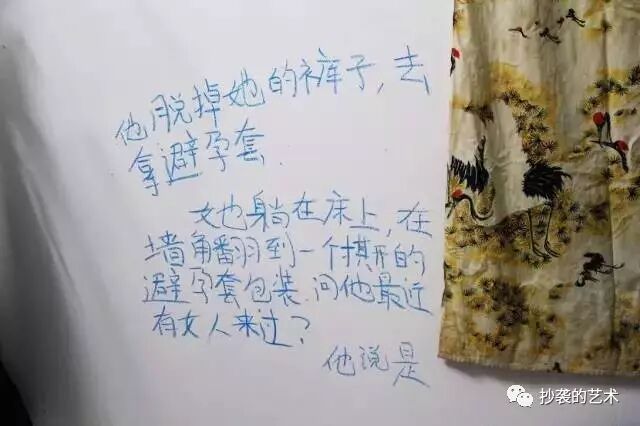 他脱掉她的裤子，去
拿避孕套.
她躺在床上，在
墙角翻到一个撕开的
避孕套包装.问他最近
有女人来过？
他说是
抄袭的艺术